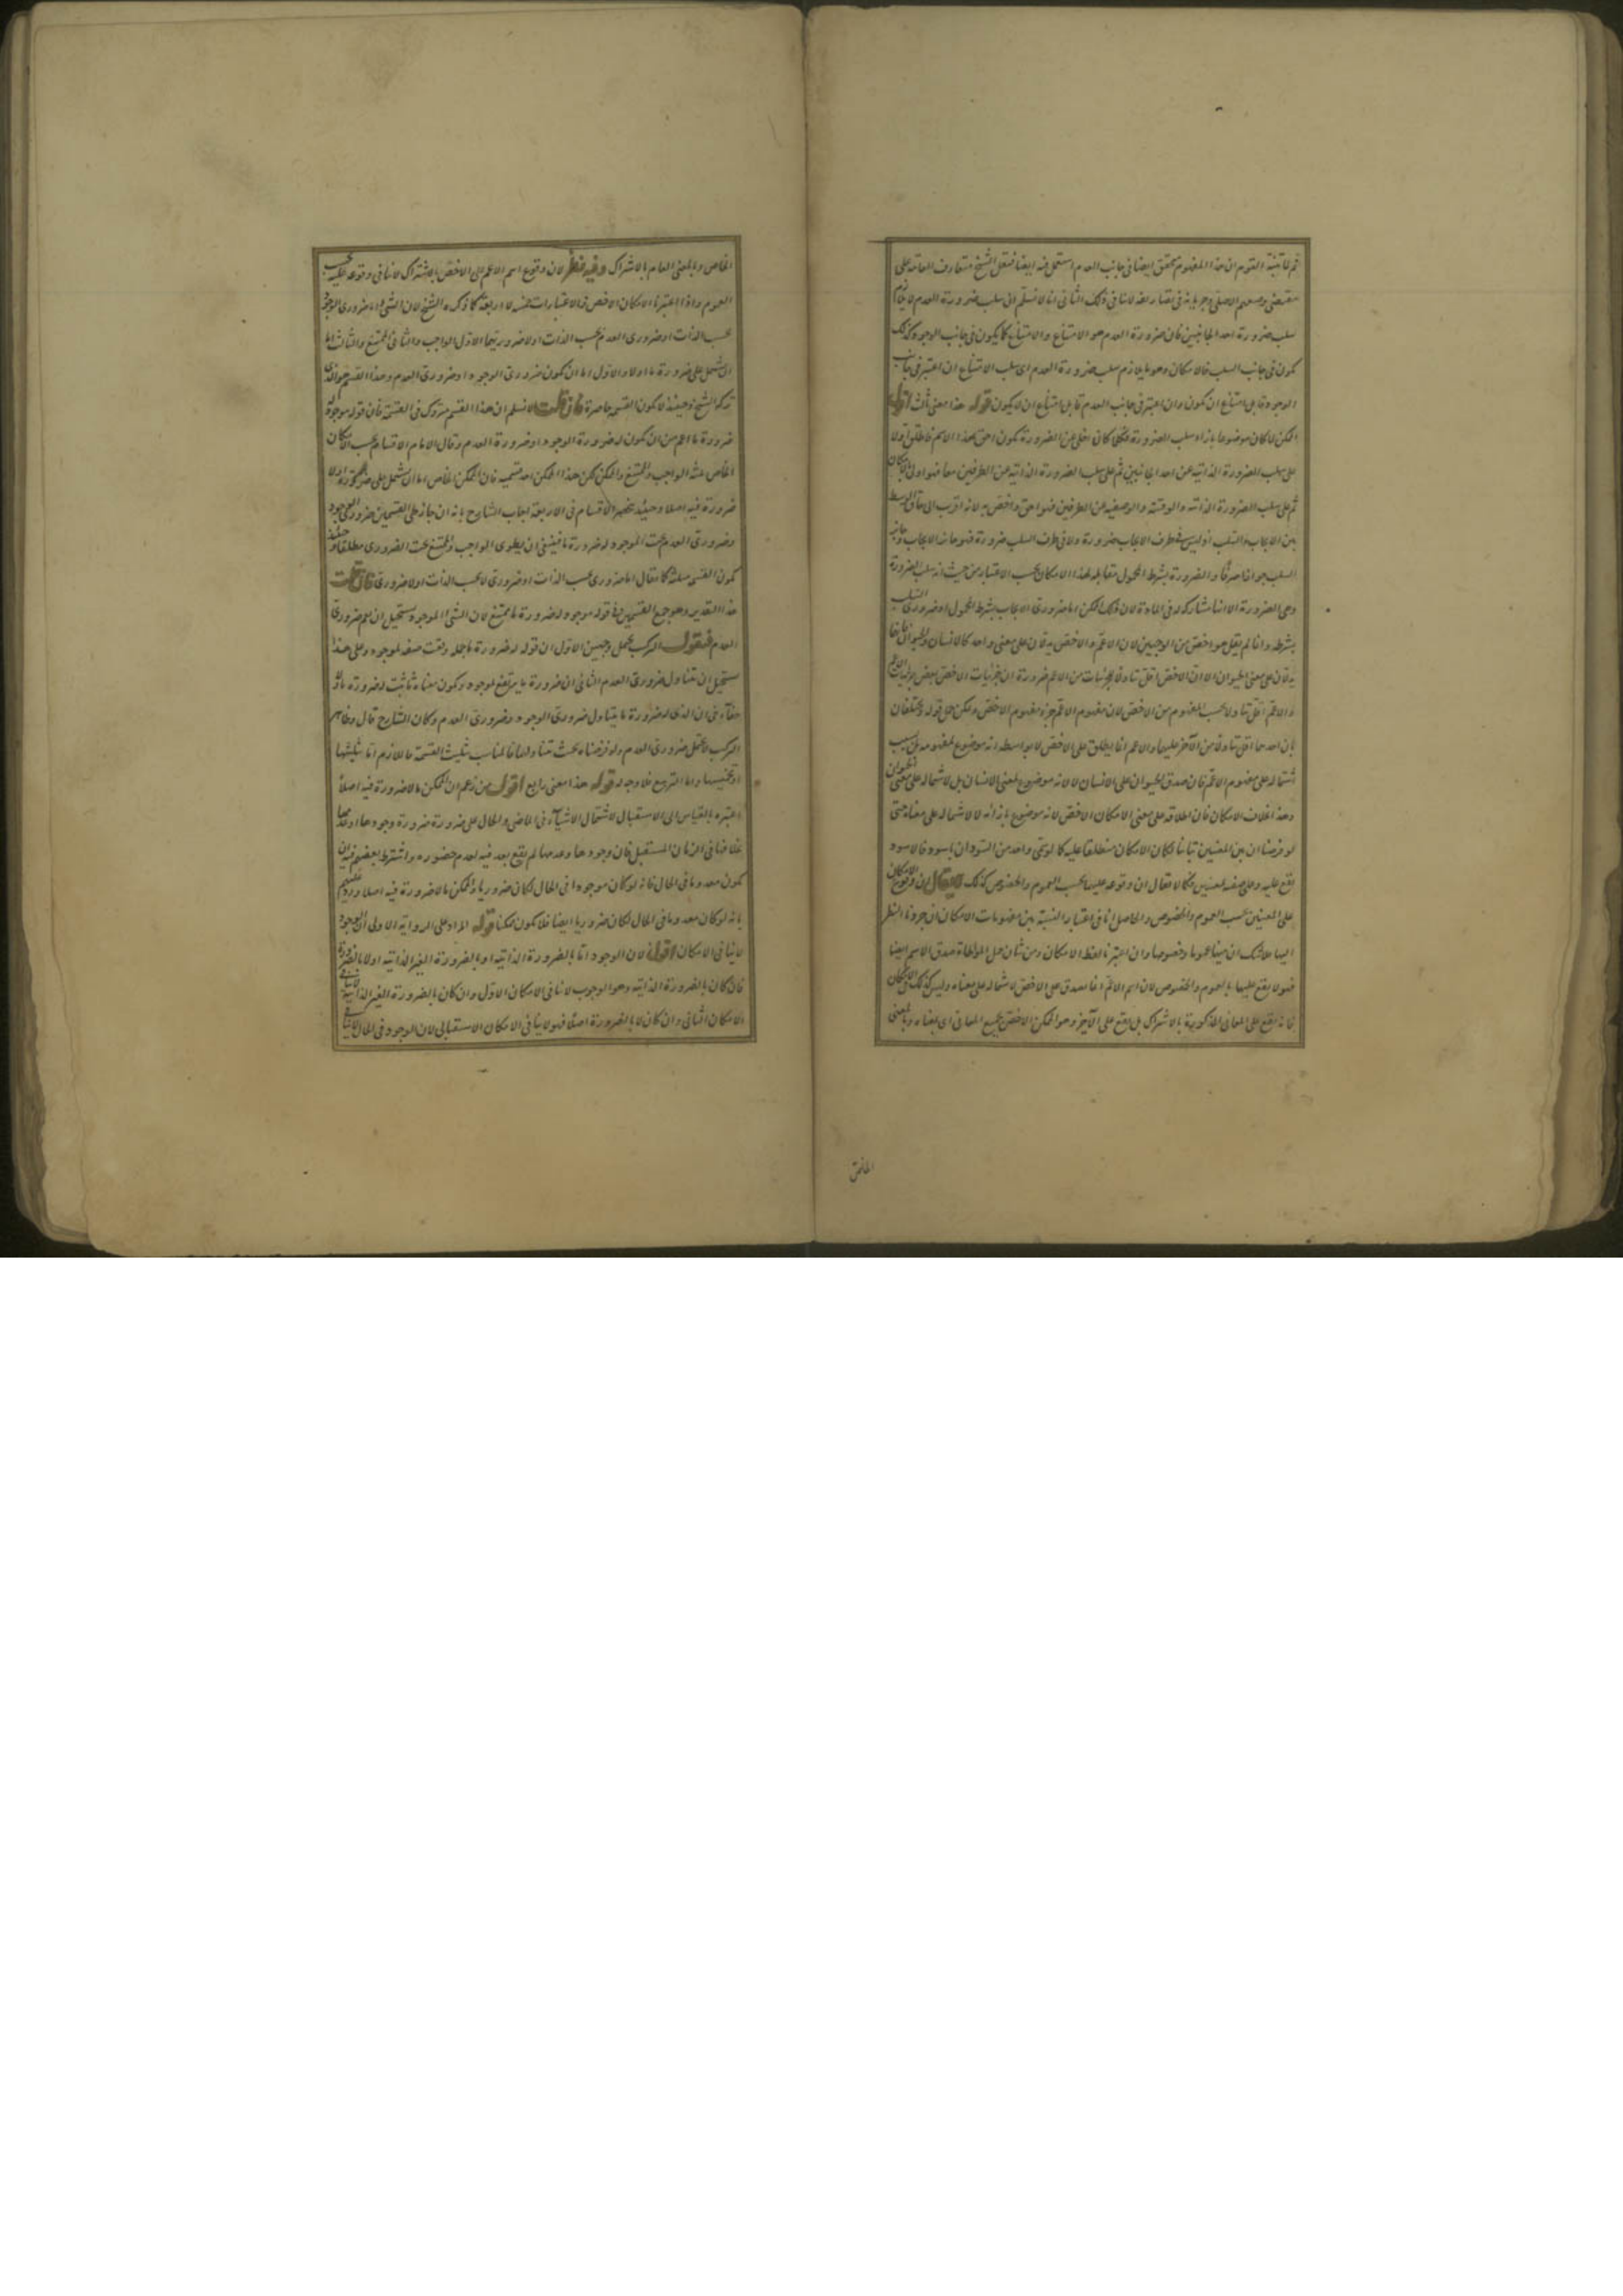 ثم لما تنبه القوم ان هذا المفهوم يتحقق ايضا فى جانب العدم استعمل فيه ايضا فنقل الشيخ متعارف العامة على
مقتضى وضعهم الاصلى وجريانه فى لا ينافى ذلك الثانى انا لا نسلم ان سلب ضرورة العدم لا يلازم
سلب ضرورة احد الجانبين فان ضرورة العدم هو الامتناع والامتناع كما يكون فى جانب الوجود كذلك
يكون فى جانب السلب فالامكان وهو ما يلازم سلب ضرورة العدم اى سلب الامتناع ان اعتبر فى جانب
الوجود قابل امتناع ان يكون وان اعتبر فى جانب العدم قابل امتناع ان لا يكون قوله هذا معنى ثالث اقول
الممكن لما كان موضوعا بازاء سلب الضرورة فكلما كان اخلى عن الضرورة يكون احق بهذا الاسم فاطلق اولا
على سلب الضرورة الذاتية عن احد الجانبين ثم على سلب الضرورة الذاتية عن الطرفين معا فهو اولى بالامكان
ثم على سلب الضرورة الذاتية والوقتية والوصفية عن الطرفين فهو احق واخص به لانه اقرب الى حاق الوسط
بين الايجاب والسلب اذ ليس فى طرف الايجاب ضرورة ولا فى طرف السلب ضرورة فهو جائز الايجاب وجائز
السلب جوازا صرفا والضرورة بشرط المحمول مقابلة لهذا الامكان بحسب الاعتبار من حيث انه سلب الضرورة
وهى الضرورة الا انها مشاركة له فى المادة لان ذلك الممكن اما ضرورى الايجاب بشرط المحمول او ضرورى السلب
بشرطه وانما لم يقل هو اخص من الوجهين لان الاعم والاخص يدلان على معنى واحد كالانسان والحيوان فانهما
يدلان على معنى الحيوان الا ان الاخص اقل تناولا للجزئيات من الاعم ضرورة ان جزئيات الاخص بعض جزئيات الاعم
والاعم اقل تناولا بحسب المفهوم من الاخص لان مفهوم الاعم جزء مفهوم الاخص ويمكن حمل قوله ويختلفان
بان احدهما اقل تناولا من الآخر عليهما والاعم انما يطلق على الاخص لا بواسطة انه موضوع لمفهومه بل بسبب
اشتماله على مفهوم الاعم فان صدق الحيوان على الانسان لا لانه موضوع لمعنى الانسان بل لاشتماله على معنى الحيوان
وهذا بخلاف الامكان فان اطلاقه على معنى الامكان الاخص لانه موضوع بازائه لا لاشتماله على معناه حتى
لو فرضنا ان بين المعنيين تباينا لكان الامكان منطلقا عليه كما لو سمى واحد من السودان باسود فالاسود
يقع عليه وعلى صفته لمعنيين فكما لا يقال ان وقوعه عليهما بحسب العموم والخصوص كذلك لا يقال ان وقوع الامكان
على المعنيين بحسب العموم والخصوص والحاصل انا فى اعتبار النسبة بين مفهومات الامكان ان جردنا النظر
اليها فلا شك ان بينها عموما وخصوصا وان اعتبرنا لفظ الامكان ومن شان حمل المواطاة صدق الاسم ايضا
فهو لا يقع عليهما بالعموم والخصوص لان اسم الاعم انما يصدق على الاخص لاشتماله على معناه وليس كذلك فى الامكان
فانه يقع على المعانى المذكورة بالاشتراك بل يقع على الآخر وهو الممكن الاخص بجميع المعانى اى بمعناه وبالمعنى
الخاص
الخاص وبالمعنى العام بالاشتراك وفيه نظر لان وقوع اسم الاعم على الاخص بالاشتراك لا ينافى وقوعه عليه بحسب
العموم واذا اعتبرنا الامكان الاخص فالاعتبارات خمسة لا اربعة كما ذكره الشيخ لان الشئ اما ضرورى الوجود
بحسب الذات او ضرورى العدم بحسب الذات او لا ضروريهما الاول الواجب والثانى الممتنع والثالث اما
ان يشتمل على ضرورة ما اولا والاول اما ان يكون ضرورى الوجود او ضرورى العدم وهذا القسم هو الذى
تركه الشيخ وحينئذ لا يكون القسمة حاصرة فان قلت لا نسلم ان هذا القسم متروك فى القسمة فان قوله موجود له
ضرورة ما اعم من ان يكون له ضرورة الوجود او ضرورة العدم وقال الامام الاقسام بحسب الامكان
الخاص ثلثة الواجب والممتنع والممكن لكن هذا الممكن احد قسميه فان الممكن الخاص اما ان يشتمل على ضرورة ما اولا
ضرورة فيه اصلا وحينئذ ينحصر الاقسام فى الاربعة اجاب الشارح بانه ان جاز طى القسمين ضرورى الوجود
وضرورى العدم تحت الموجود له ضرورة ما فينبغى ان يطوى الواجب والممتنع تحت الضرورى مطلقا وحينئذ
يكون القسمة مثلثة كما يقال اما ضرورى بحسب الذات او ضرورى لا بحسب الذات او لا ضرورى فان قلت
هذا التقدير وهو جمع القسمين فى قوله موجود له ضرورة ما ممتنع لان الشئ الموجود يستحيل ان يعمه ضرورى
العدم فنقول المركب يحتمل وجهين الاول ان قوله له ضرورة ما جملة وقعت صفة لموجود وعلى هذا
يستحيل ان يتناول ضرورى العدم الثانى ان ضرورة ما مرتفع لموجود ويكون معناه ثابت له ضرورة ما ولا
خفاء فى ان الذى له ضرورة ما يتناول ضرورى الوجود وضرورى العدم وكان الشارح قال وظاهر
التركيب لا يحتمل ضرورى العدم ولو فرضناه بحيث يتناولهما فالمناسب تثليث القسمة فاللازم اما تثليثها
او تخميسها واما التربيع فلا وجه له قوله هذا معنى رابع اقول من زعم ان الممكن ما لا ضرورة فيه اصلا
اعتبره بالقياس الى الاستقبال لاشتمال الاشياء فى الماضى والحال على ضرورة ضرورة وجودها او عدمها
بخلافها فى الزمان المستقبل فان وجودها وعدمها لم يقع بعد فيه لعدم حضوره واشترط بعضهم فيه ان
يكون معدوما فى الحال فانه لو كان موجودا فى الحال لكان ضروريا والممكن ما لا ضرورة فيه اصلا ورد عليهم
بانه لو كان معدوما فى الحال لكان ضروريا ايضا فلا يكون ممكنا قوله المراد على الرواية الاولى ان الوجود
لا ينافى الامكان اقول لان الوجود اما بالضرورة الذاتية او بالضرورة الغير الذاتية او لا بالضرورة
فان كان بالضرورة الذاتية وهو الوجوب لا ينافى الامكان الاول وان كان بالضرورة الغير الذاتية لا ينافى
الامكان الثانى وان كان لا بالضرورة اصلا فهو لا ينافى الامكان الاستقبالى لان الوجود فى الحال لا ينافى